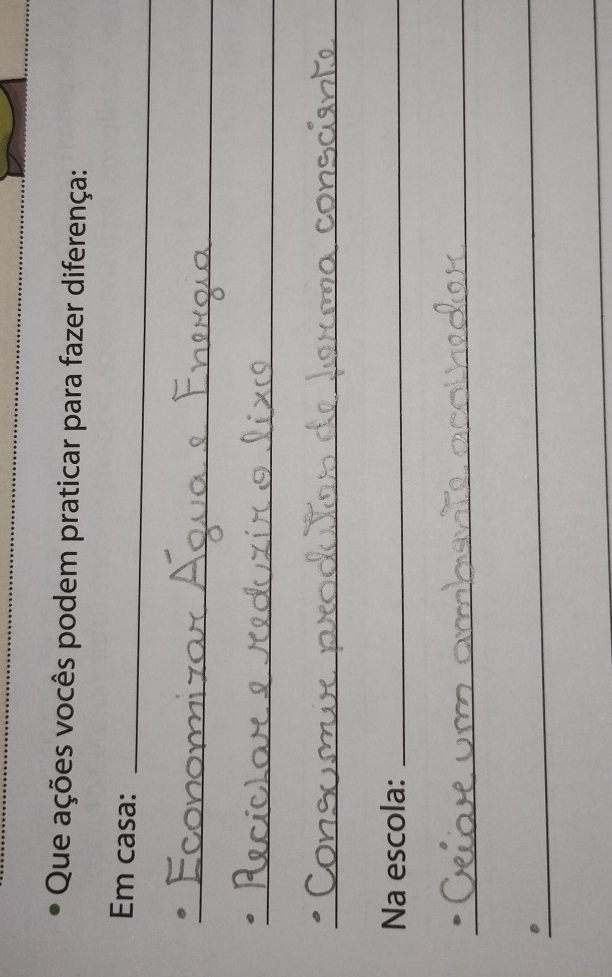 • Que ações vocês podem praticar para fazer diferença:
Em casa:
• Economizar Água e Energia
• Reciclar e reduzir o lixo
• Consumir produtos de forma consciente
Na escola:
• Criar um ambiente acolhedor
•